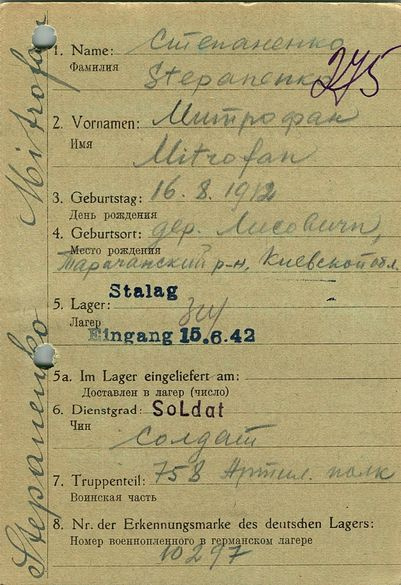 Stepanenko Mitrofan
275
1. Name: Степаненко
Фамилия
Stepanenko
2. Vornamen: Митрофан
Имя
Mitrofan
3. Geburtstag: 16.8.1912
День рождения
4. Geburtsort: дер. Лисовичи,
Место рождения
Таращанский р-н, Киевской обл.
Stalag
5. Lager:
Лагер
Eingang 15.6.42
5a. Im Lager eingeliefert am:
Доставлен в лагер (число)
6. Dienstgrad: SoLdat
Чин
Солдат
7. Truppenteil: 758 Артил. полк
Воинская часть
8. Nr. der Erkennungsmarke des deutschen Lagers:
Номер военнопленного в германском лагере
10297